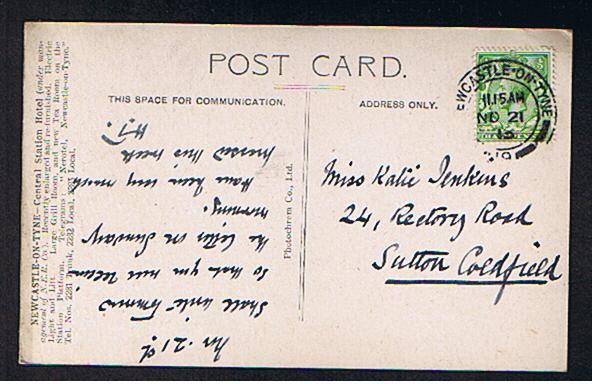 POST CARD.
THIS SPACE FOR COMMUNICATION.
ADDRESS ONLY.
NEWCASTLE-ON-TYNE
11.15 AM
NO 21
13
Miss Katie Jenkins
24, Rectory Road
Sutton Coldfield
Nov. 21st
Shall write tomorrow
so that you will receive
the letter on Sunday
morning.
Have been very much
this week
Photochrom Co., Ltd.
NEWCASTLE-ON-TYNE—Central Station Hotel (under man-
agement of N.E.R. Co.). Recently enlarged and re-furnished. Electric
Light and Lift. Large Grill Room, and new Tea Room on the
Station Platform. Telegrams: "Nerotel, Newcastle-on-Tyne."
Tel. Nos. 2231 Trunk, 2232 Local, Local.